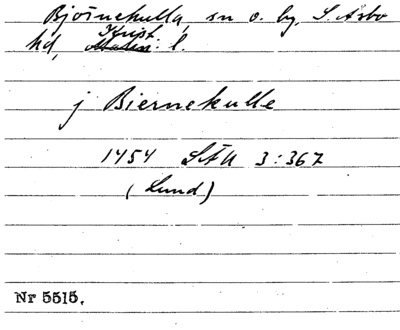 Björnekulla, sn o. by, S. Åsbo
hd, Krist. l.
j Biernekulle
1454 SÄU 3:367
(Lund)
Nr 5515.